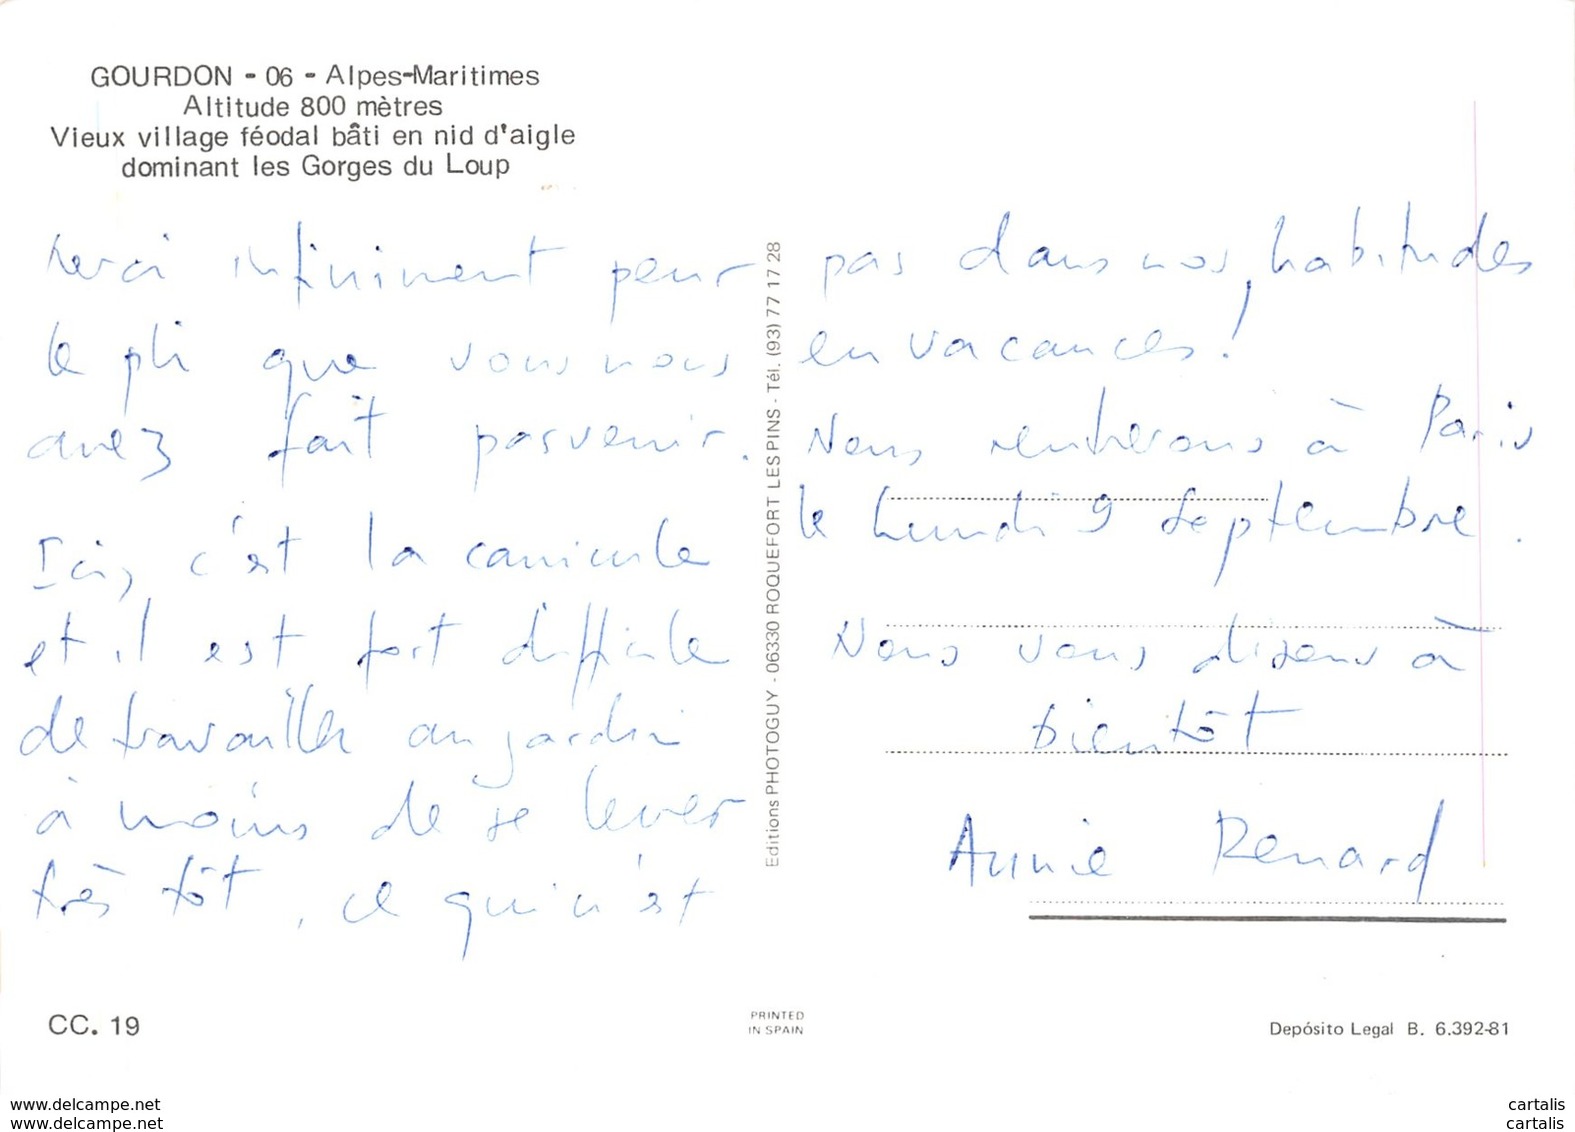 GOURDON - 06 - Alpes-Maritimes
Altitude 800 mètres
Vieux village féodal bâti en nid d'aigle
dominant les Gorges du Loup
Merci infiniment pour
le pli que vous nous
avez fait parvenir.
Ici, c'est la canicule
et il est fort difficile
de travailler au jardin
à moins de se lever
très tôt, ce qui n'est
Editions PHOTOGUY - 06330 ROQUEFORT LES PINS - Tél. (93) 77 17 28
pas dans nos habitudes
en vacances !
Nous rentrerons à Paris
le lundi 9 Septembre.
Nous vous disons à
bientôt
Annie Renard
CC. 19
PRINTED
IN SPAIN
Depósito Legal B. 6.392-81
www.delcampe.net/cartalis
www.delcampe.net/cartalis
cartalis
cartalis